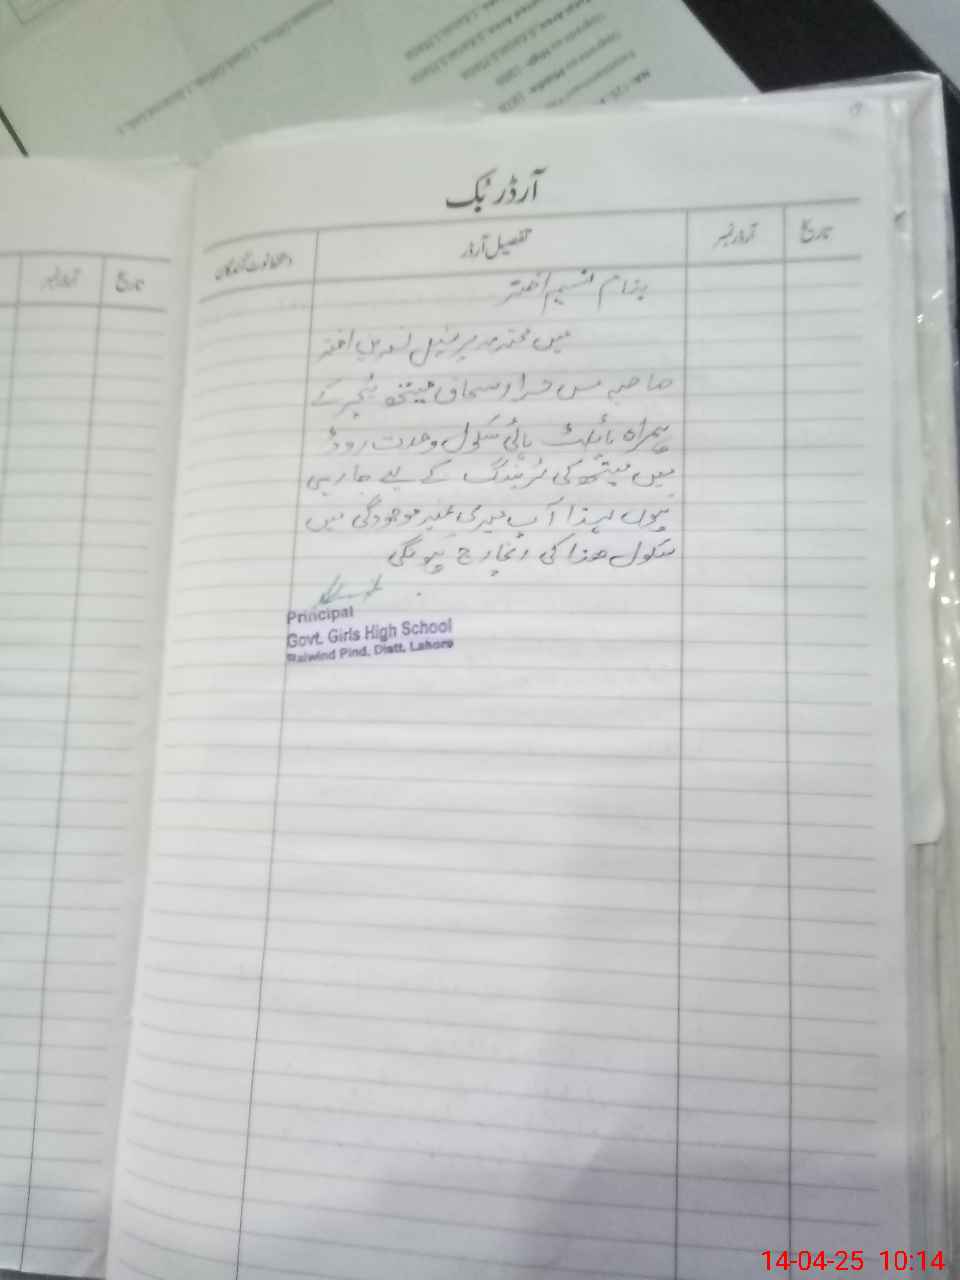 آرڈر بک
تاریخ
آرڈر نمبر
تفصیل آرڈر
بنام نسیم اختر
میں محترمہ پرنسپل نسرین اختر
صاحبہ مس اسحاق میتھ ٹیچر کے
ہمراہ پائلٹ ہائی سکول وحدت روڈ
میں میتھ کی ٹریننگ کے لیے جا رہی
ہوں لہذا آپ میری غیر موجودگی میں
سکول ھذا کی انچارج ہونگی
Principal
Govt. Girls High School
Raiwind Pind, Distt. Lahore
تاریخ
آرڈر نمبر
14-04-25 10:14